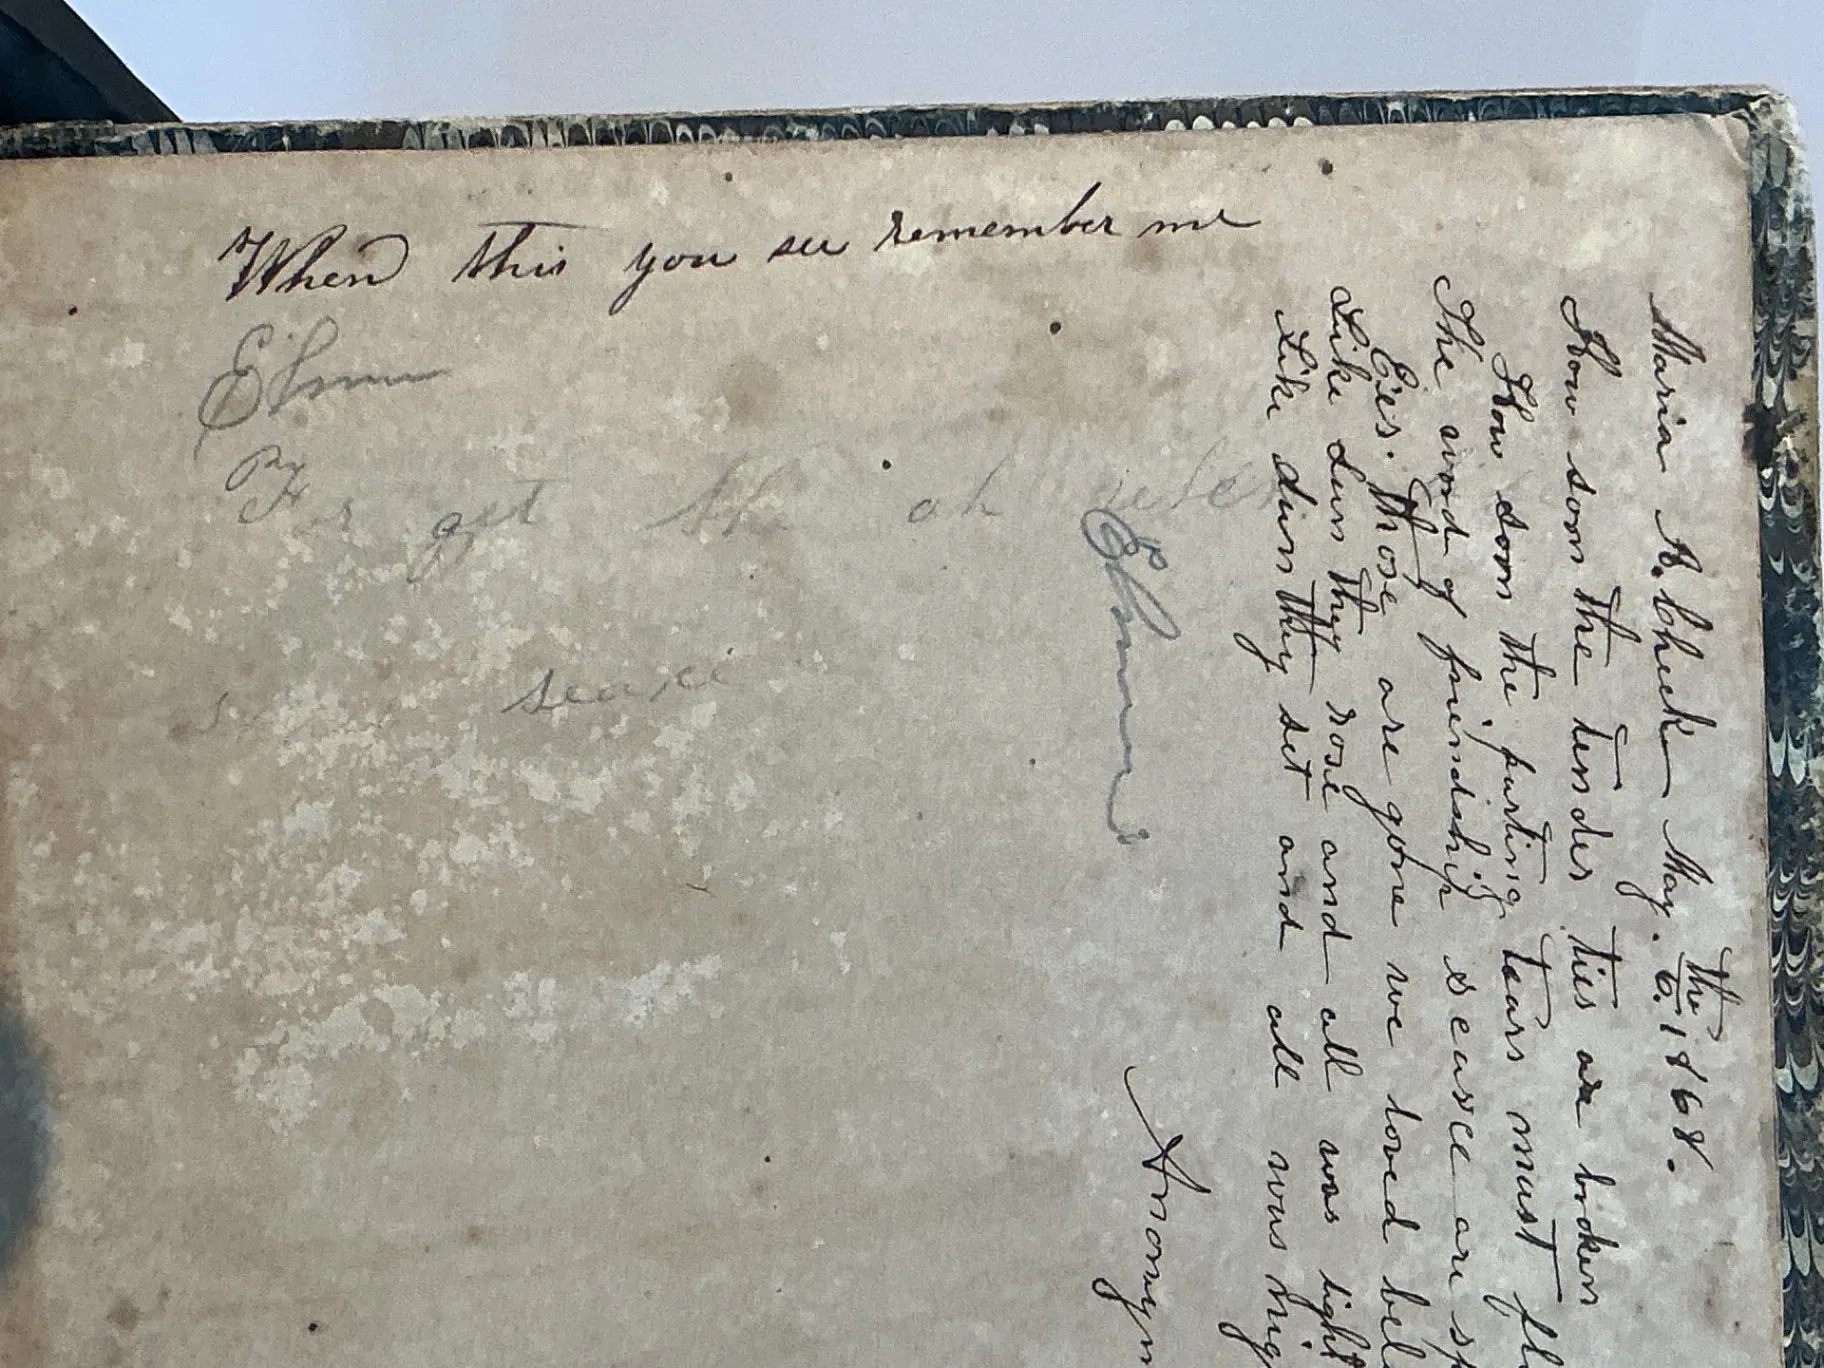 When this you see remember me
Elmu
For get the oh
scarce
Elmu
Maria A. Cheek May. the 6. 1868.
How soon the tender ties are broken
How soon the parting tears must
The word of friendship scarce are
E'es. those are gone we loved
Like Suns they rose and all was light
Like suns they set and all was